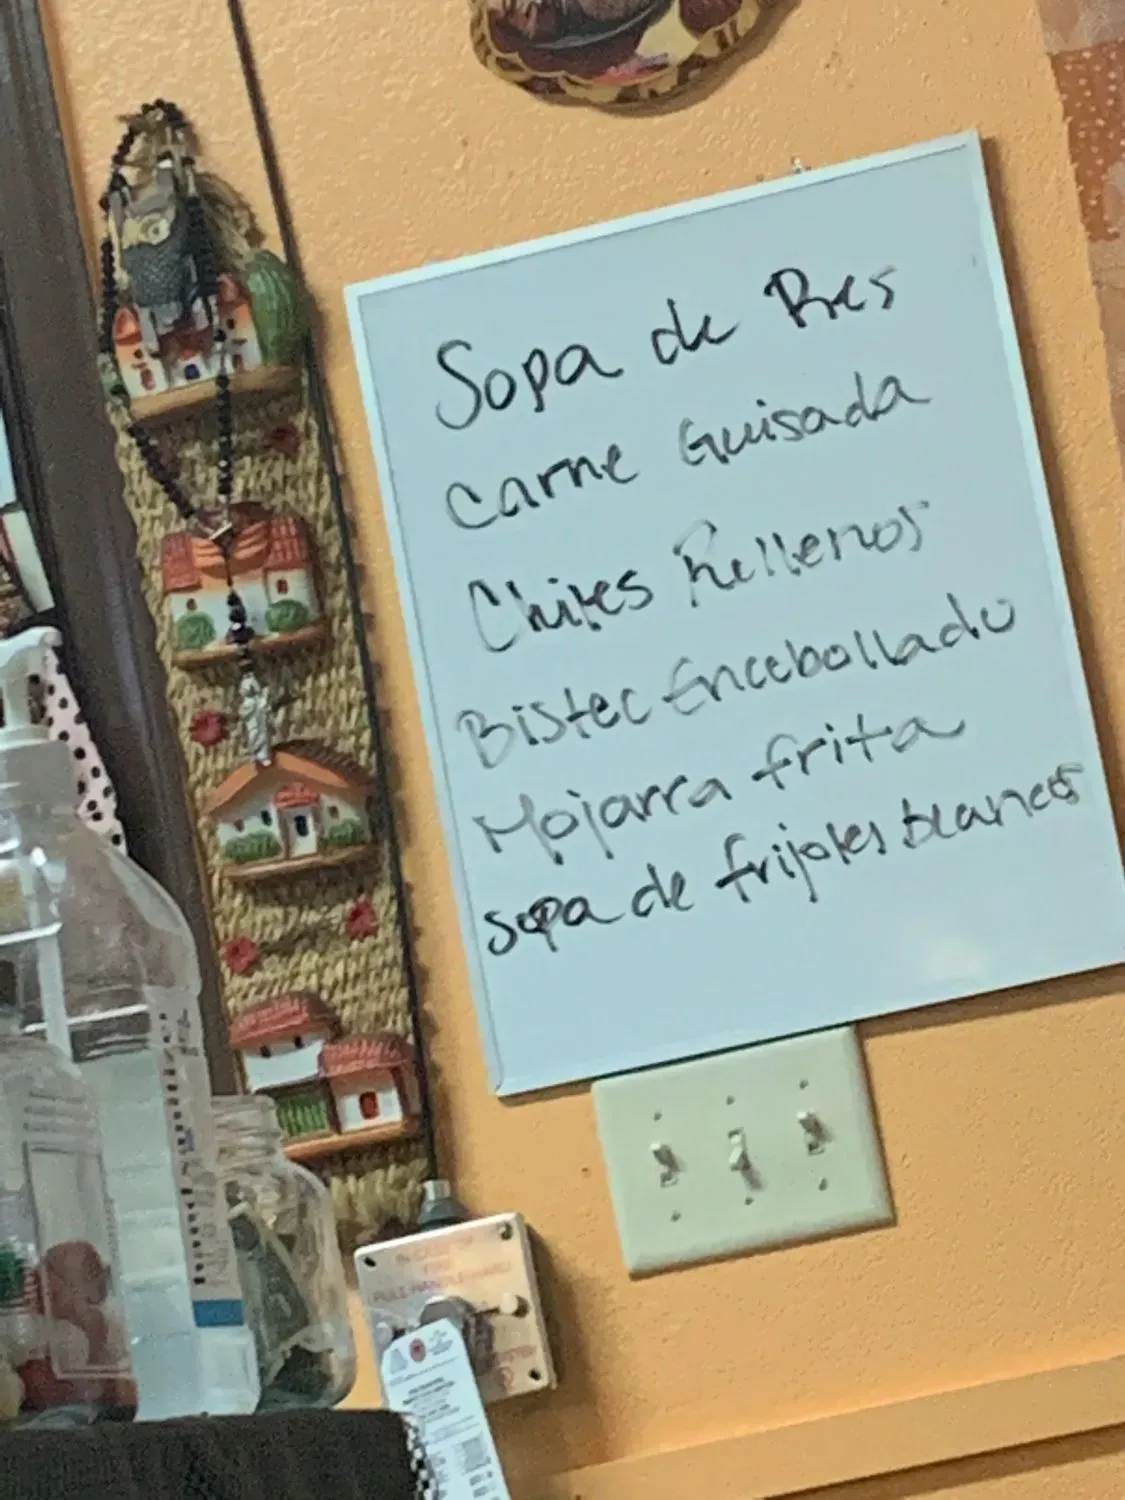 Sopa de Res
Carne Guisada
Chiles Rellenos
Bistec Encebollado
Mojarra frita
sopa de frijoles blancos
PULL HANDLE HARD